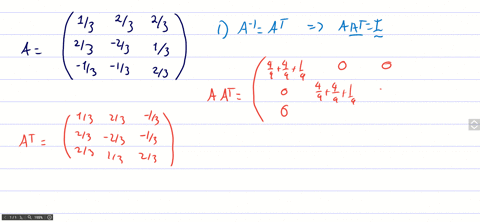 A = ( 1/3 2/3 2/3
2/3 -2/3 1/3
-1/3 -1/3 2/3 )
1) A⁻¹ = Aᵀ ⇒ A Aᵀ = I
A Aᵀ = ( 4/9 + 4/9 + 1/9 0 0
0 4/9 + 4/9 + 1/9
0
Aᵀ = ( 1/3 2/3 -1/3
2/3 -2/3 -1/3
2/3 1/3 2/3 )